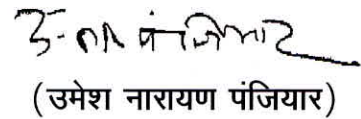 (उमेश नारायण पंजियार)